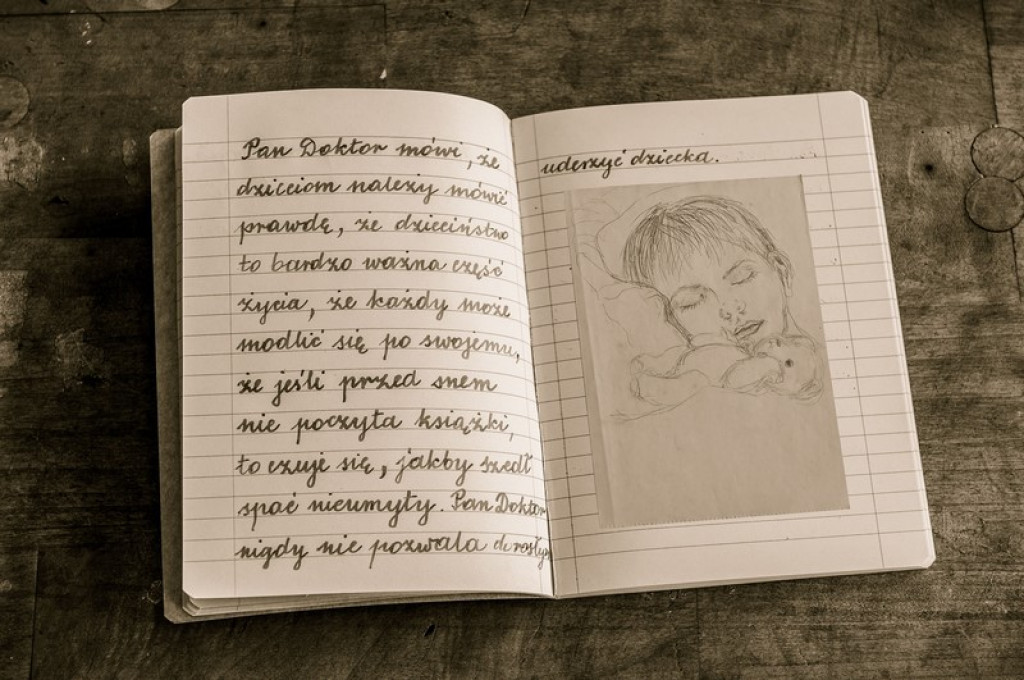 Pan Doktor mówi, że
dzieciom należy mówić
prawdę, że dzieciństwo
to bardzo ważna część
życia, że każdy może
modlić się po swojemu,
że jeśli przed snem
nie poczyta książki,
to czuje się, jakby szedł
spać nieumyty. Pan Doktor
nigdy nie pozwala dorosłym
uderzyć dziecka.